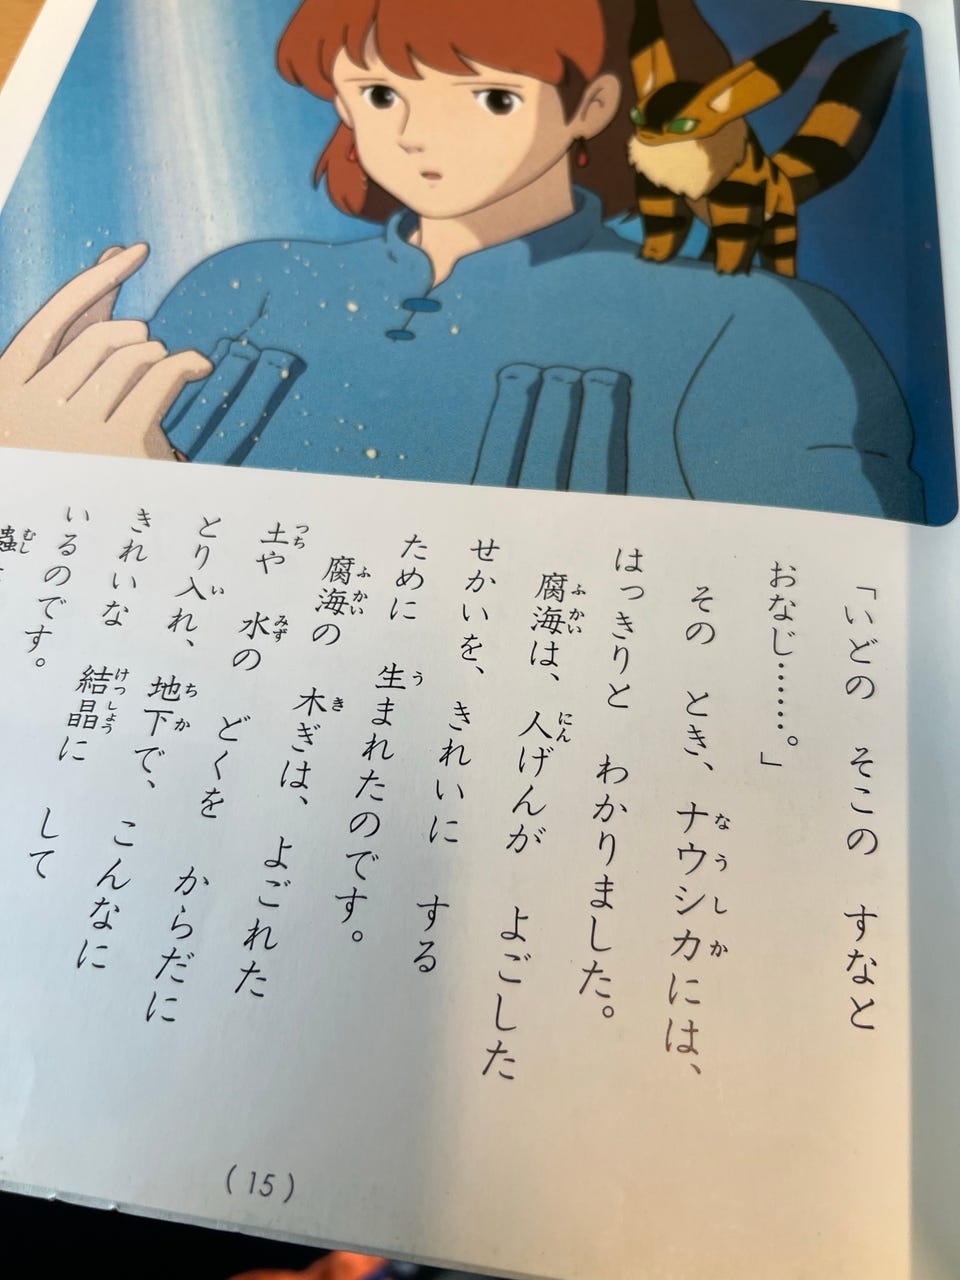 「いどの そこの すなと
おなじ……。」
その とき、ナウシカには、
はっきりと わかりました。
腐海は、人げんが よごした
せかいを、きれいに する
ために 生まれたのです。
腐海の 木ぎは、よごれた
土や 水の どくを からだに
とり入れ、地下で、こんなに
きれいな 結晶に して
いるのです。
蟲
(15)